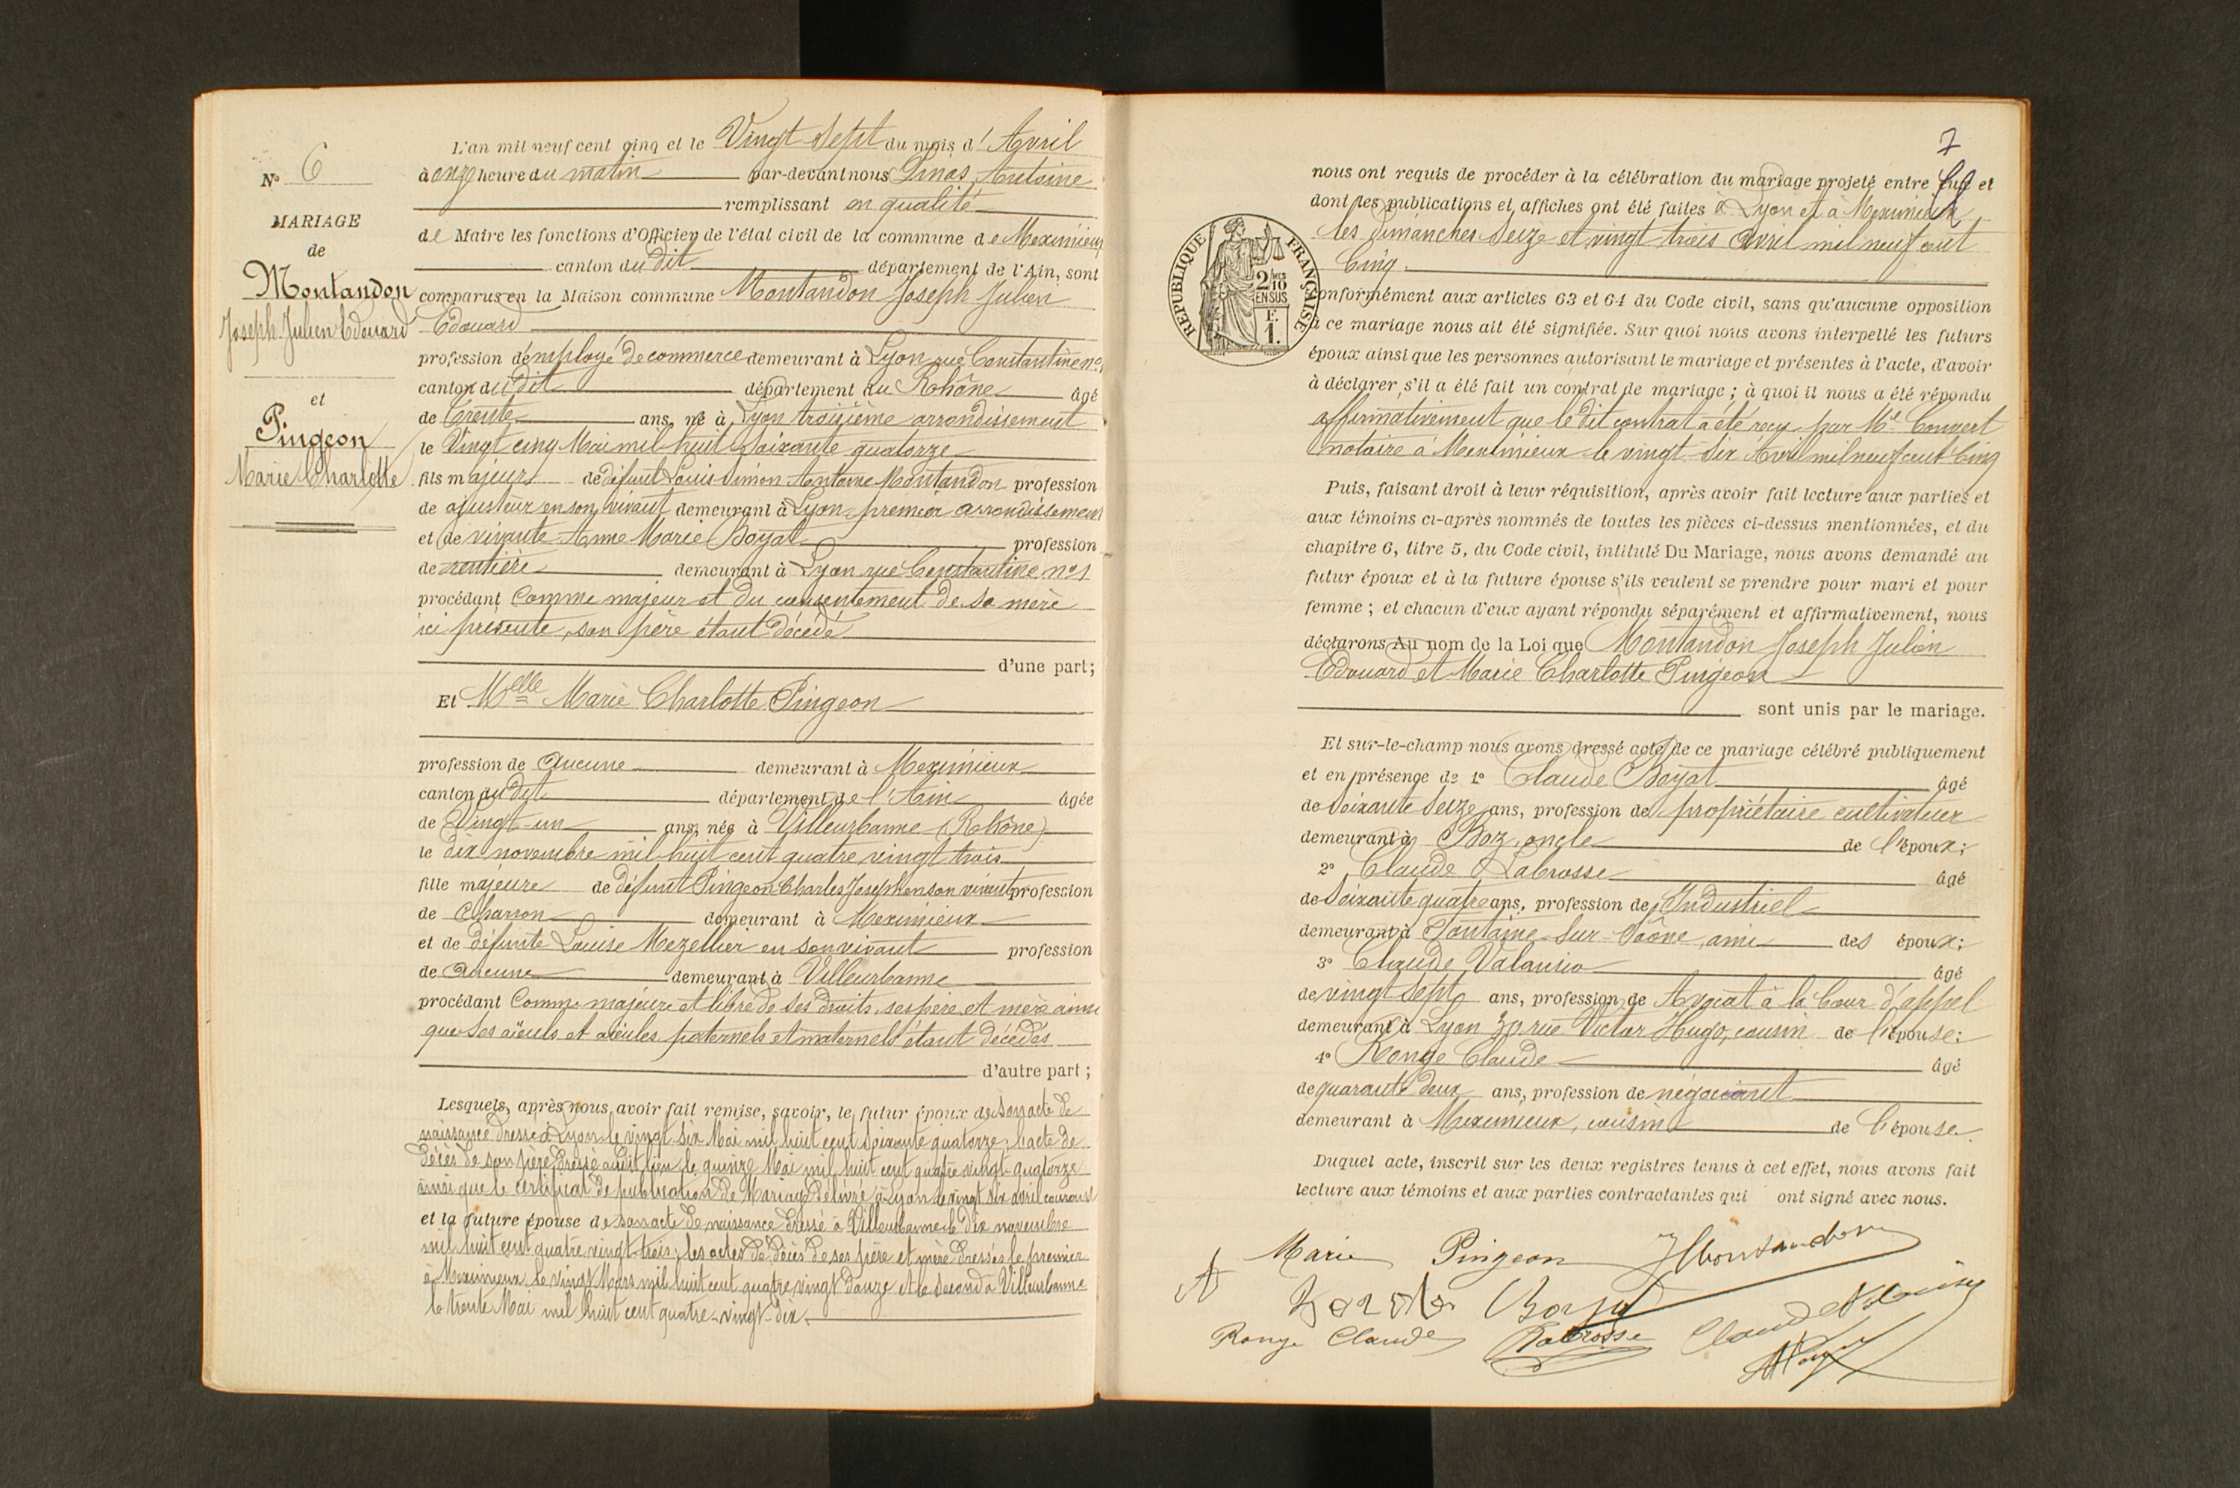 N° 6
MARIAGE
de
Montandon
Joseph Julien Edouard
et
Pingeon
Marie Charlotte
L'an mil neuf cent cinq et le Vingt Sept du mois d'Avril
à onze heure du matin par-devant nous Antoine
remplissant en qualité
de Maire les fonctions d'Officier de l'état civil de la commune de Meximieux
canton du dit département de l'Ain, sont
comparus en la Maison commune Montandon Joseph Julien
Edouard
profession d'employé de commerce demeurant à Lyon rue Constantine n° 1
canton du dit département du Rohône âgé
de trente ans, né à Lyon troisième arrondissement
le Vingt cinq Mai mil huit soixante quatorze
fils majeur de défunt Louis Simon Antoine Montandon profession
de ajusteur en son vivant demeurant à Lyon premier arrondissement
et de vivante Anne Marie Boyat profession
de rentière demeurant à Lyon rue Constantine n° 1
procédant Comme majeur et du consentement de sa mère
ici présente, son père étant décédé
d'une part;
Et Melle Marie Charlotte Pingeon
profession de Aucune demeurant à Meximieux
canton du dit département de l'Ain âgée
de Vingt-un ans, née à Villeurbanne (Rhône)
le dix novembre mil huit cent quatre vingt trois
fille majeure de défunt Pingeon Charles Joseph en son vivant profession
de Charron demeurant à Meximieux
et de défunte Louise Mezellier en son vivant profession
de Aucune demeurant à Villeurbanne
procédant Comme majeure et libre de ses droits, ses père et mère ainsi
que ses aïeuls et aïeules paternels et maternels étant décédés
d'autre part;
Lesquels, après nous avoir fait remise, savoir, le futur époux de son acte de
naissance dressé à Lyon le vingt six Mai mil huit cent soixante quatorze, l'acte de
décès de son père dressé audit lieu le quinze Mai mil huit cent quatre vingt-quatorze
ainsi que le certificat de publication de Mariage délivré à Lyon le vingt six avril courant
et la future épouse de son acte de naissance dressé à Villeurbanne le dix novembre
mil huit cent quatre vingt-trois; les actes de décès de ses père et mère dressés le premier
à Meximieux le vingt Mars mil huit cent quatre vingt douze et le second à Villeurbanne
le trente Mai mil huit cent quatre-vingt-dix.
7
nous ont requis de procéder à la célébration du mariage projeté entre eux et
dont les publications et affiches ont été faites à Lyon et à Meximieux
les Dimanches Seize et vingt trois Avril mil neuf cent
Cinq
RÉPUBLIQUE FRANÇAISE
2/10 EN SUS
F. 1.
conformément aux articles 63 et 64 du Code civil, sans qu'aucune opposition
à ce mariage nous ait été signifiée. Sur quoi nous avons interpellé les futurs
époux ainsi que les personnes autorisant le mariage et présentes à l'acte, d'avoir
à déclarer s'il a été fait un contrat de mariage; à quoi il nous a été répondu
affirmativement que le dit contrat a été reçu par Me Convert
notaire à Meximieux le vingt-six Avril mil neuf cent Cinq
Puis, faisant droit à leur réquisition, après avoir fait lecture aux parties et
aux témoins ci-après nommés de toutes les pièces ci-dessus mentionnées, et du
chapitre 6, titre 5, du Code civil, intitulé Du Mariage, nous avons demandé au
futur époux et à la future épouse s'ils veulent se prendre pour mari et pour
femme; et chacun d'eux ayant répondu séparément et affirmativement, nous
déclarons Au nom de la Loi que Montandon Joseph Julien
Edouard et Marie Charlotte Pingeon
sont unis par le mariage.
Et sur-le-champ nous avons dressé acte de ce mariage célébré publiquement
et en présence de 1° Claude Boyat âgé
de Soixante Seize ans, profession de propriétaire cultivateur
demeurant à Boz, oncle de l'époux;
2° Claude Labrosse âgé
de Soixante quatre ans, profession de Industriel
demeurant à Fontaine-Sur-Saône, ami des époux;
3° Claude Valansio âgé
de vingt sept ans, profession de Avocat à la Cour d'appel
demeurant à Lyon 30 rue Victor Hugo, cousin de l'épouse;
4° Ronge Claude âgé
de quarante deux ans, profession de négociant
demeurant à Meximieux, cousin de l'épouse.
Duquel acte, inscrit sur les deux registres tenus à cet effet, nous avons fait
lecture aux témoins et aux parties contractantes qui ont signé avec nous.
Marie Pingeon JMontandon
Boyat
Ronge Claude Labrosse Claude